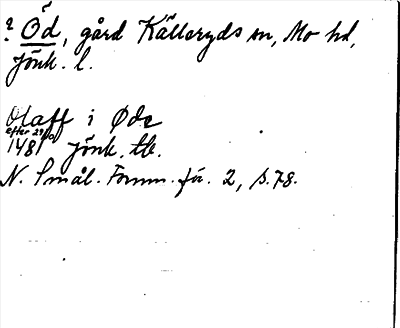 ? Öd, gård Källeryds sn, Mo hd,
Jönk. l.
Olaff i Øde
efter 29/10
1481 Jönk. tb.
N. Smål. Fornm. för. 2, s. 78.